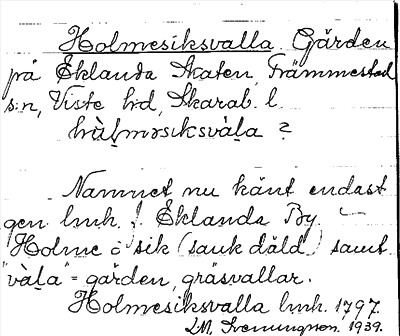 Holmesiksvalla. Gården
på Eklanda Skaten, Främmestad
s:n, Viste hd, Skarab. l.
hùl̥məsiksvàl̥a ?
Namnet nu känt endast
gen. lmh. ! Eklanda By.
Holme å sik (sank däld) samt
"vàl̥a" = gärden, gräsvallar.
Holmesiksvalla lmh. 1797.
LM. Svenungson. 1939.